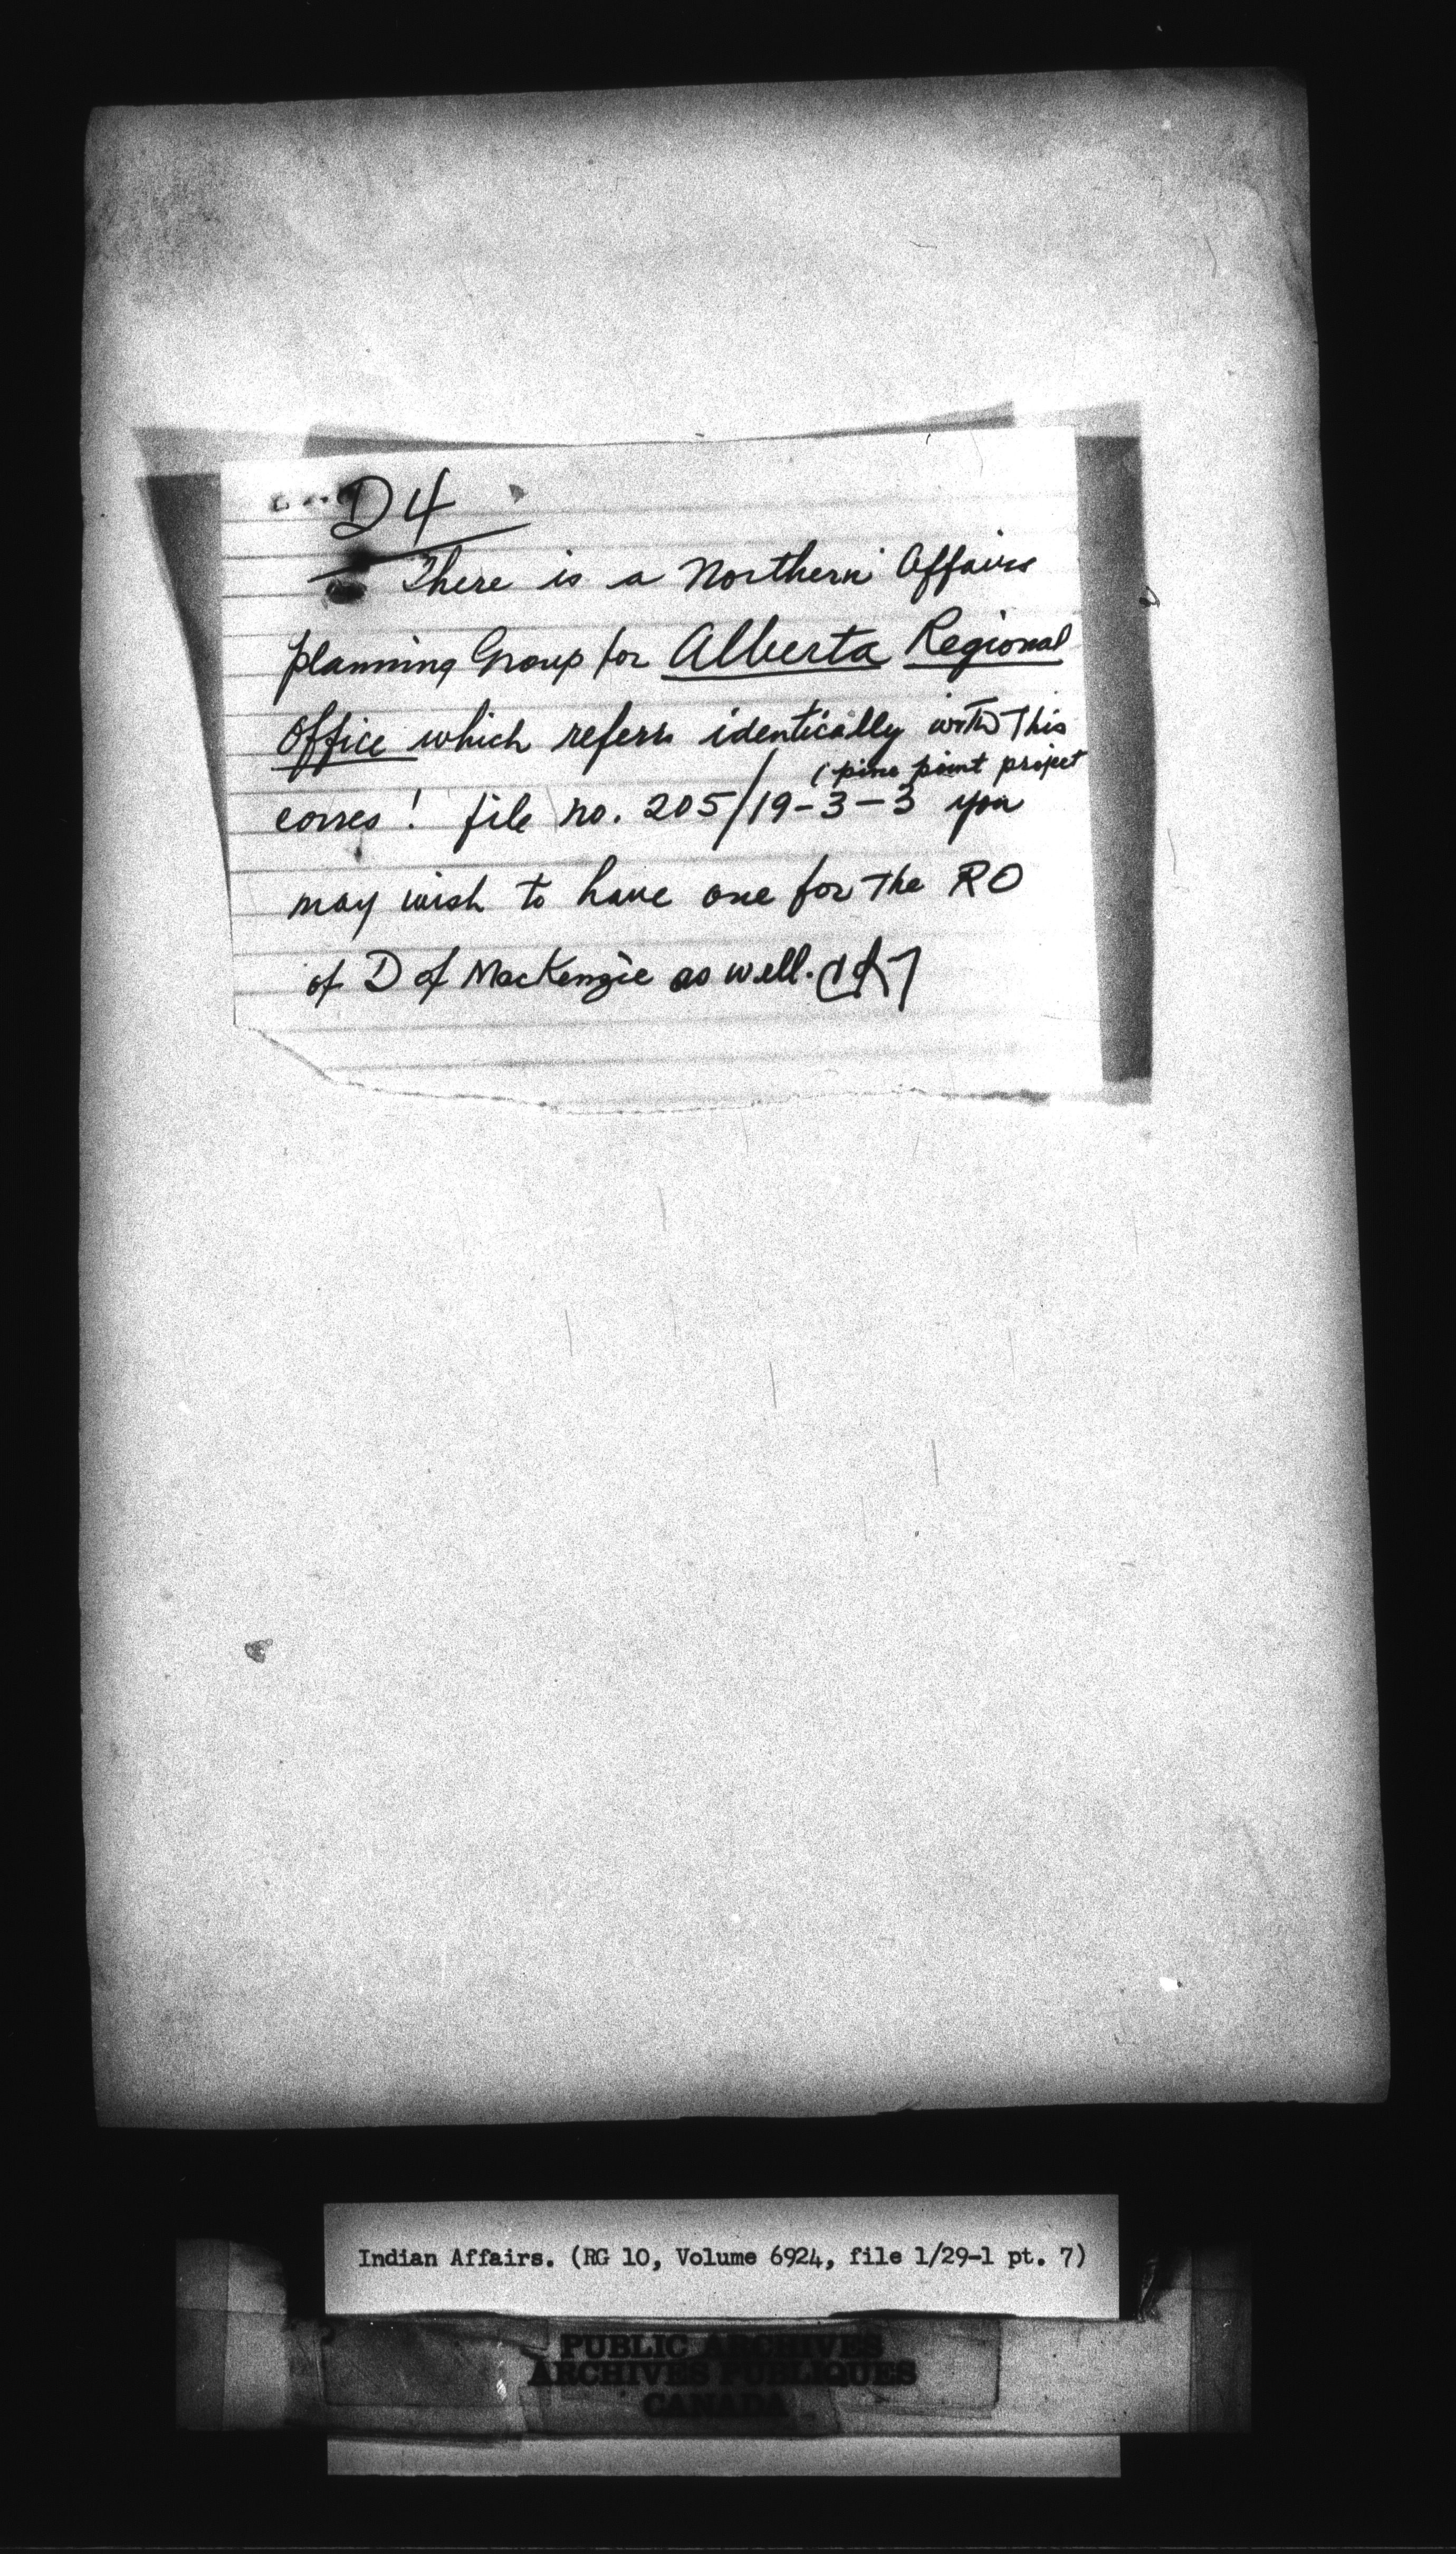 D4
There is a Northern Affairs
planning Group for Alberta Regional
Office which refers identically with This
(pine point project
corres! file no. 205/19-3-3 you
may wish to have one for The RO
of D of MacKenzie as well.
Indian Affairs. (RG 10, Volume 6924, file 1/29-1 pt. 7)
PUBLIC ARCHIVES
ARCHIVES PUBLIQUES
CANADA